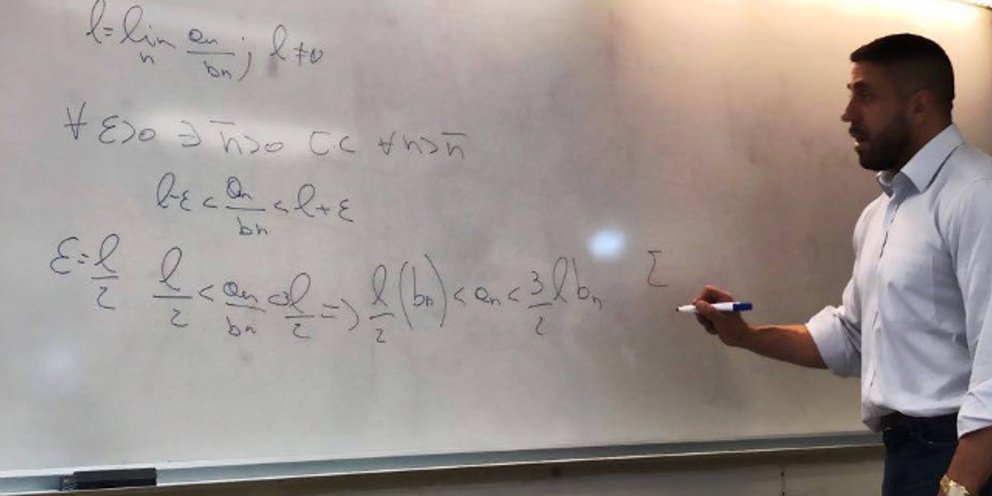 l = lim_n an/bn ; l ≠ 0
∀ ε>0 ∃ n̄>0 t.c. ∀n>n̄
l-ε < an/bn < l+ε
ε = l/2 l/2 < an/bn < 3l/2 => l/2 (bn) < an < 3/2 l bn Σ